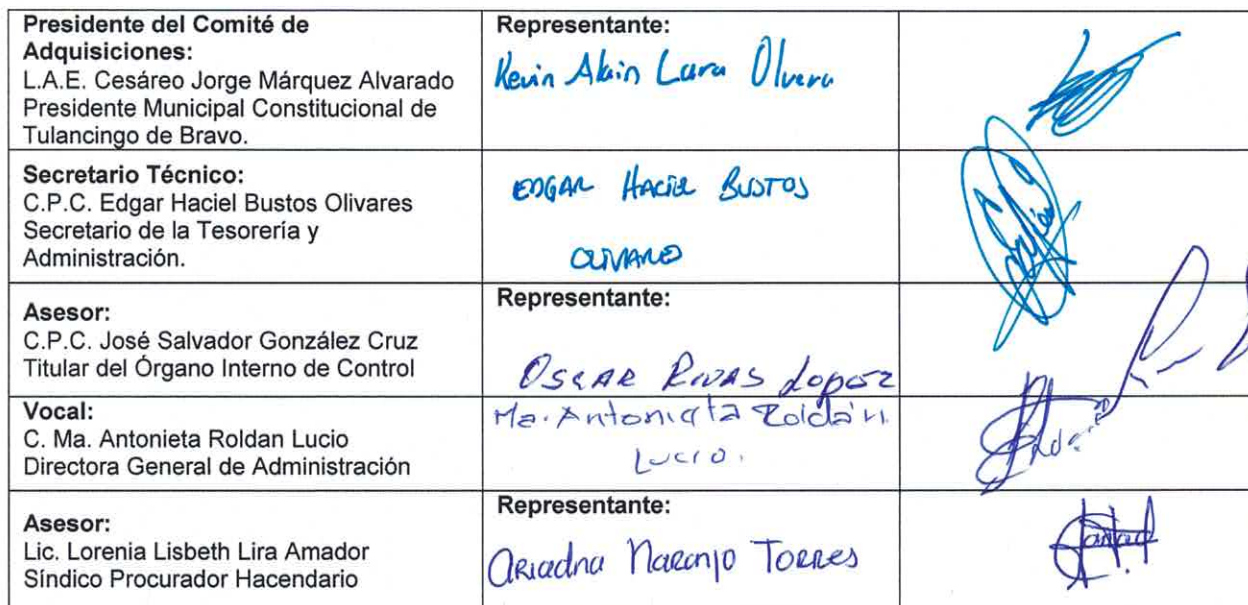 Presidente del Comité de
Adquisiciones:
L.A.E. Cesáreo Jorge Márquez Alvarado
Presidente Municipal Constitucional de
Tulancingo de Bravo.
Representante:
Kevin Alain Lara Olvera
Secretario Técnico:
C.P.C. Edgar Haciel Bustos Olivares
Secretario de la Tesorería y
Administración.
EDGAR HACIEL BUSTOS
OLIVARES
Asesor:
C.P.C. José Salvador González Cruz
Titular del Órgano Interno de Control
Representante:
OSCAR RIVAS LOPEZ
Vocal:
C. Ma. Antonieta Roldan Lucio
Directora General de Administración
Ma. Antonieta Roldán
Lucio.
Asesor:
Lic. Lorenia Lisbeth Lira Amador
Síndico Procurador Hacendario
Representante:
Ariadna Naranjo Torres